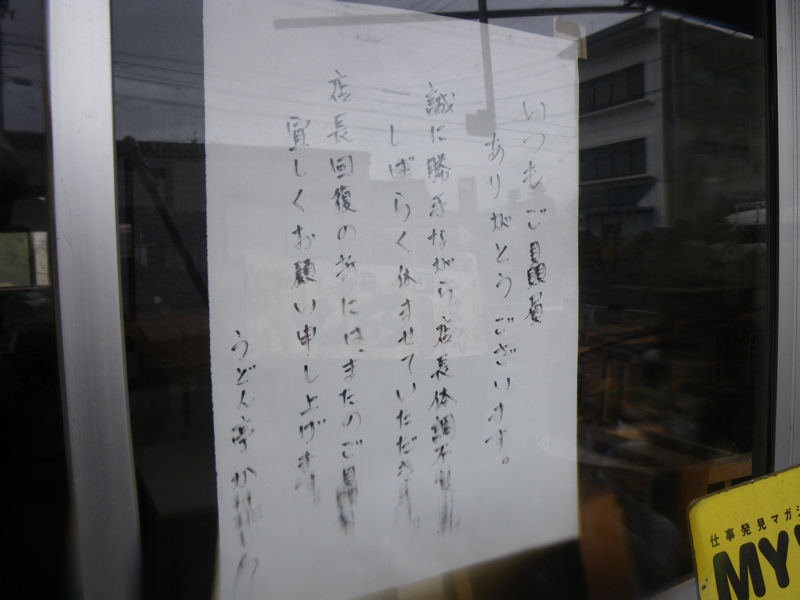 いつもご贔屓
ありがとうございます。
誠に勝手ながら店長体調不良
しばらく休ませていただき
店長回復の折には、またのご
宜しくお願い申し上げます
うどん亭か
仕事発見マガジ
MY